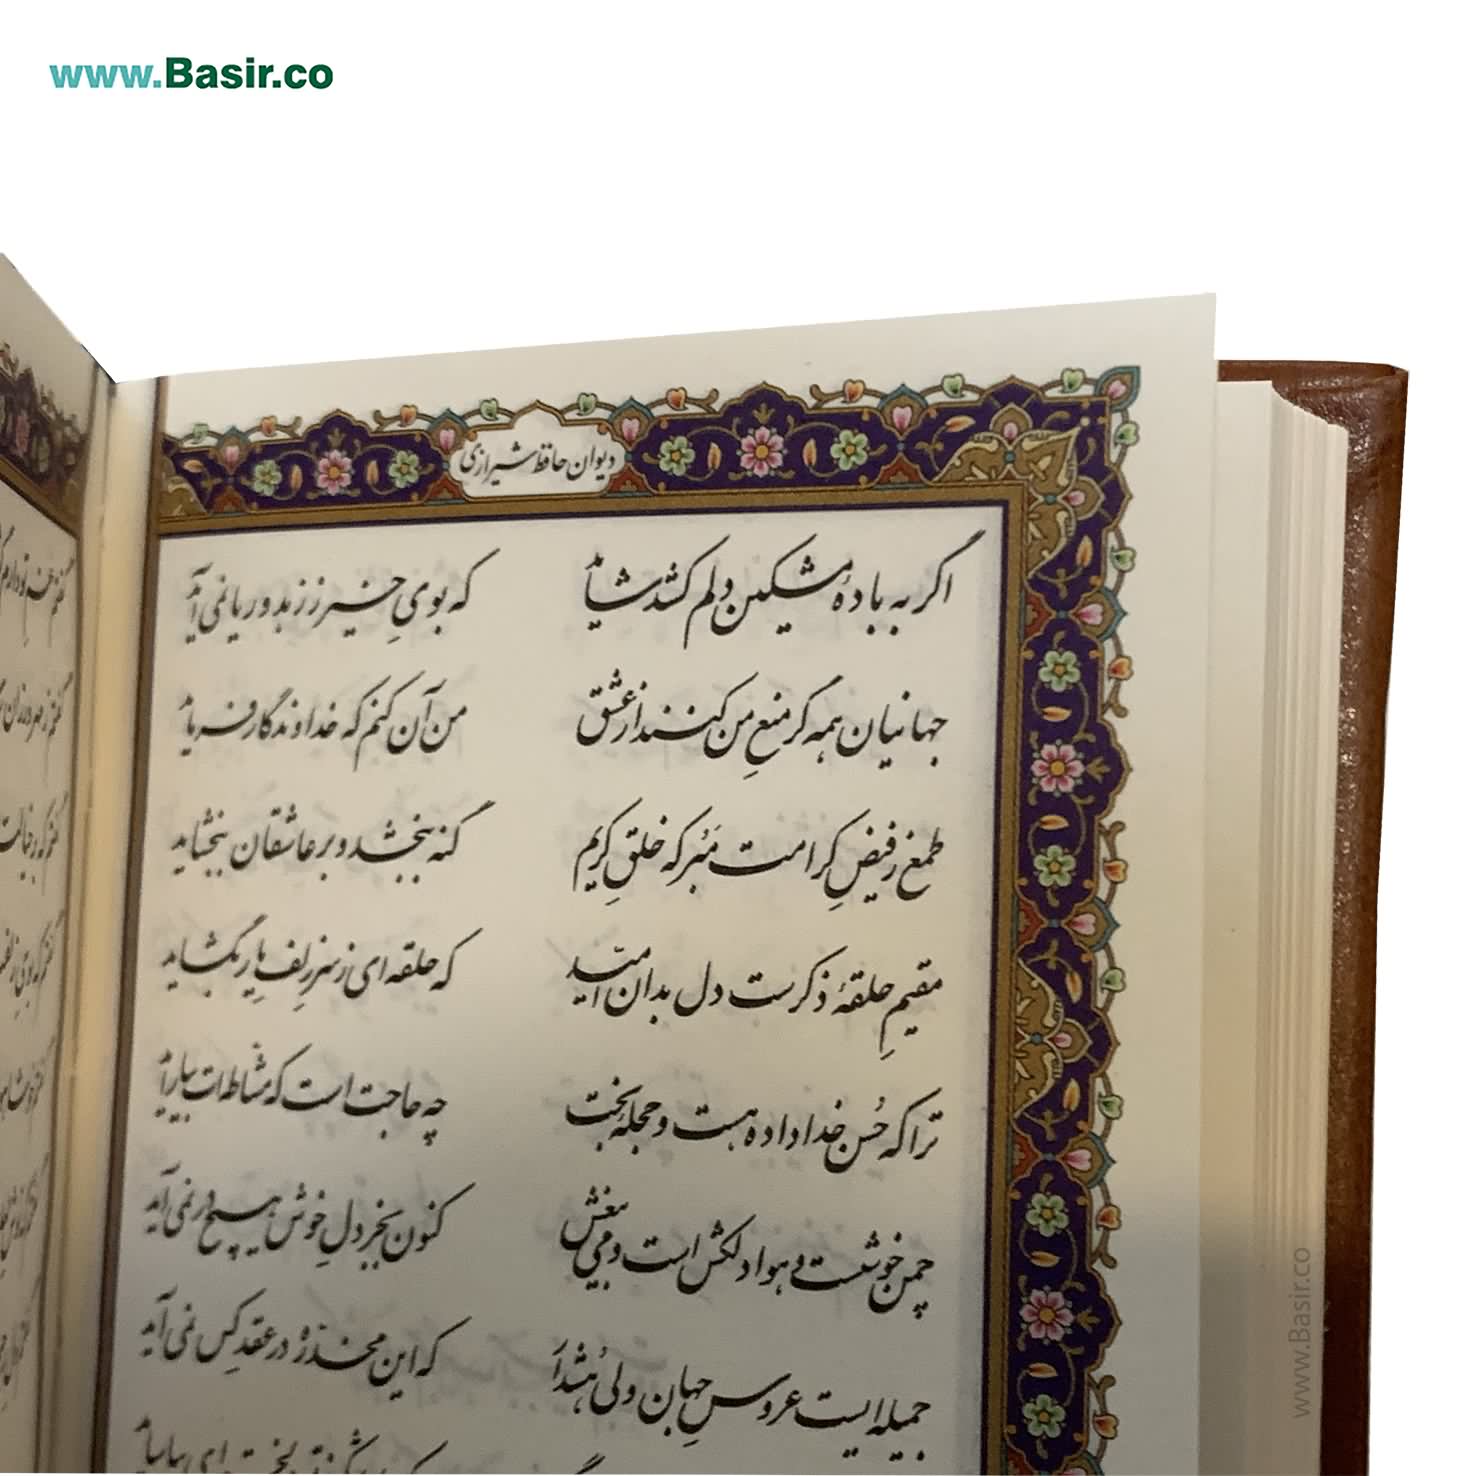 www.Basir.co
دیوان حافظ شیرازی
اگر به بادهٔ مشکین دلم کشد شاید که بوی خیر ز زهد و ریا نمی‌آید
جهانیان همه گر منعِ من کنند از عشق من آن کنم که خداوندگار فرماید
طمع ز فیضِ کرامت مَبُر که خلقِ کریم گنه ببخشد و بر عاشقان ببخشاید
مقیمِ حلقهٔ ذکرست دل بدان امّید که حلقه‌ای ز سرِ زلفِ یار بگشاید
ترا که حُسنِ خداداده هست و حجلهٔ بخت چه حاجت است که مشّاطه‌ات بیاراید
چمن خوشست و هوا دلکش است و می بیغش کنون بجز دلِ خوش هیچ در نمی‌آید
جمیله‌ایست عروسِ جهان ولی هُشدار که این مخدّره در عقدِ کس نمی‌آید
www.Basir.co